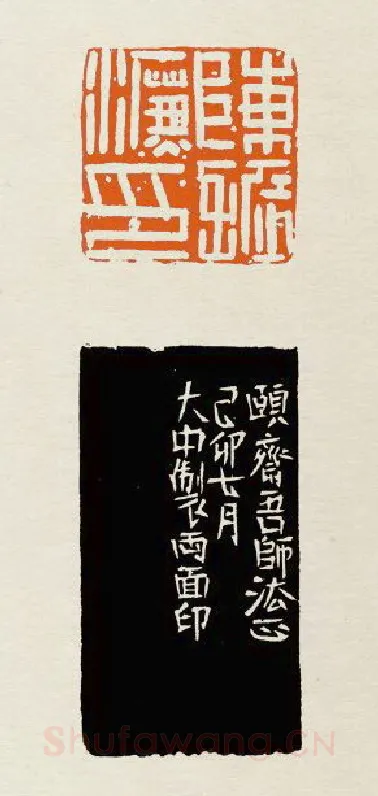 陳
印
頤齋吾師法正
己卯七月
大中製兩面印
Shufawang.CN